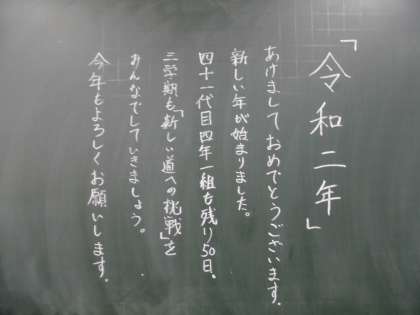 「令和二年」
あけましておめでとうございます。
新しい年が始まりました。
四十一代目四年一組も残り50日。
三学期も「新しい道への挑戦」を
みんなでしていきましょう。
今年もよろしくお願いします。